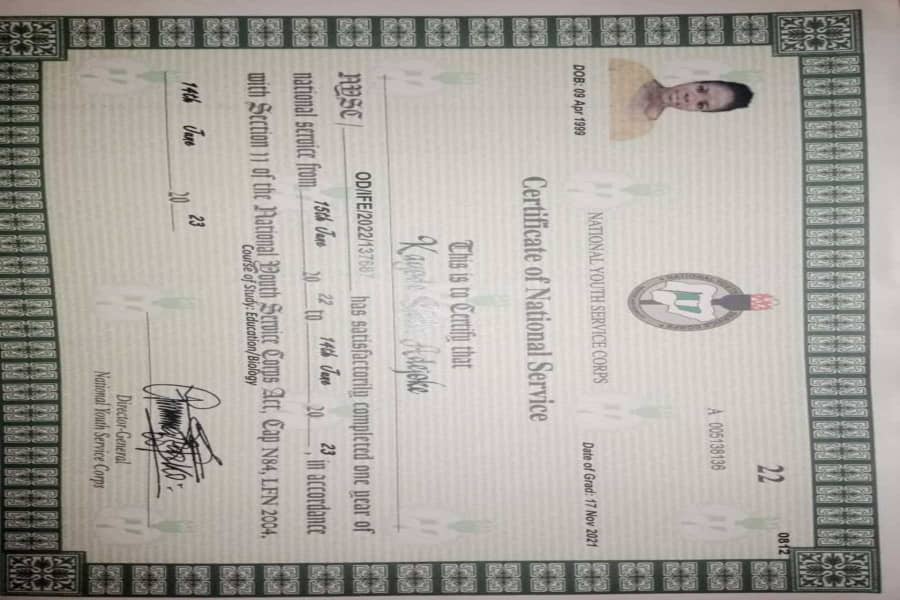 0812
22
A 005138136
NATIONAL YOUTH SERVICE CORPS
DOB: 09 Apr 1999
Date of Grad: 17 Nov 2021
Certificate of National Service
This is to Certify that
Adejoke
NYSC / OD/IFE/2022/137687 has satisfactorily completed one year of
national service from 15th June 20 22 to 14th June 20 23, in accordance
with Section 11 of the National Youth Service Corps Act, Cap N84, LFN 2004.
Course of Study: Education/Biology
14th June 20 23
Director-General
National Youth Service Corps